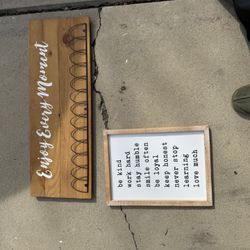 Enjoy Every Moment
be kind
work hard
stay humble
smile often
be loyal
keep honest
never stop
learning
love much